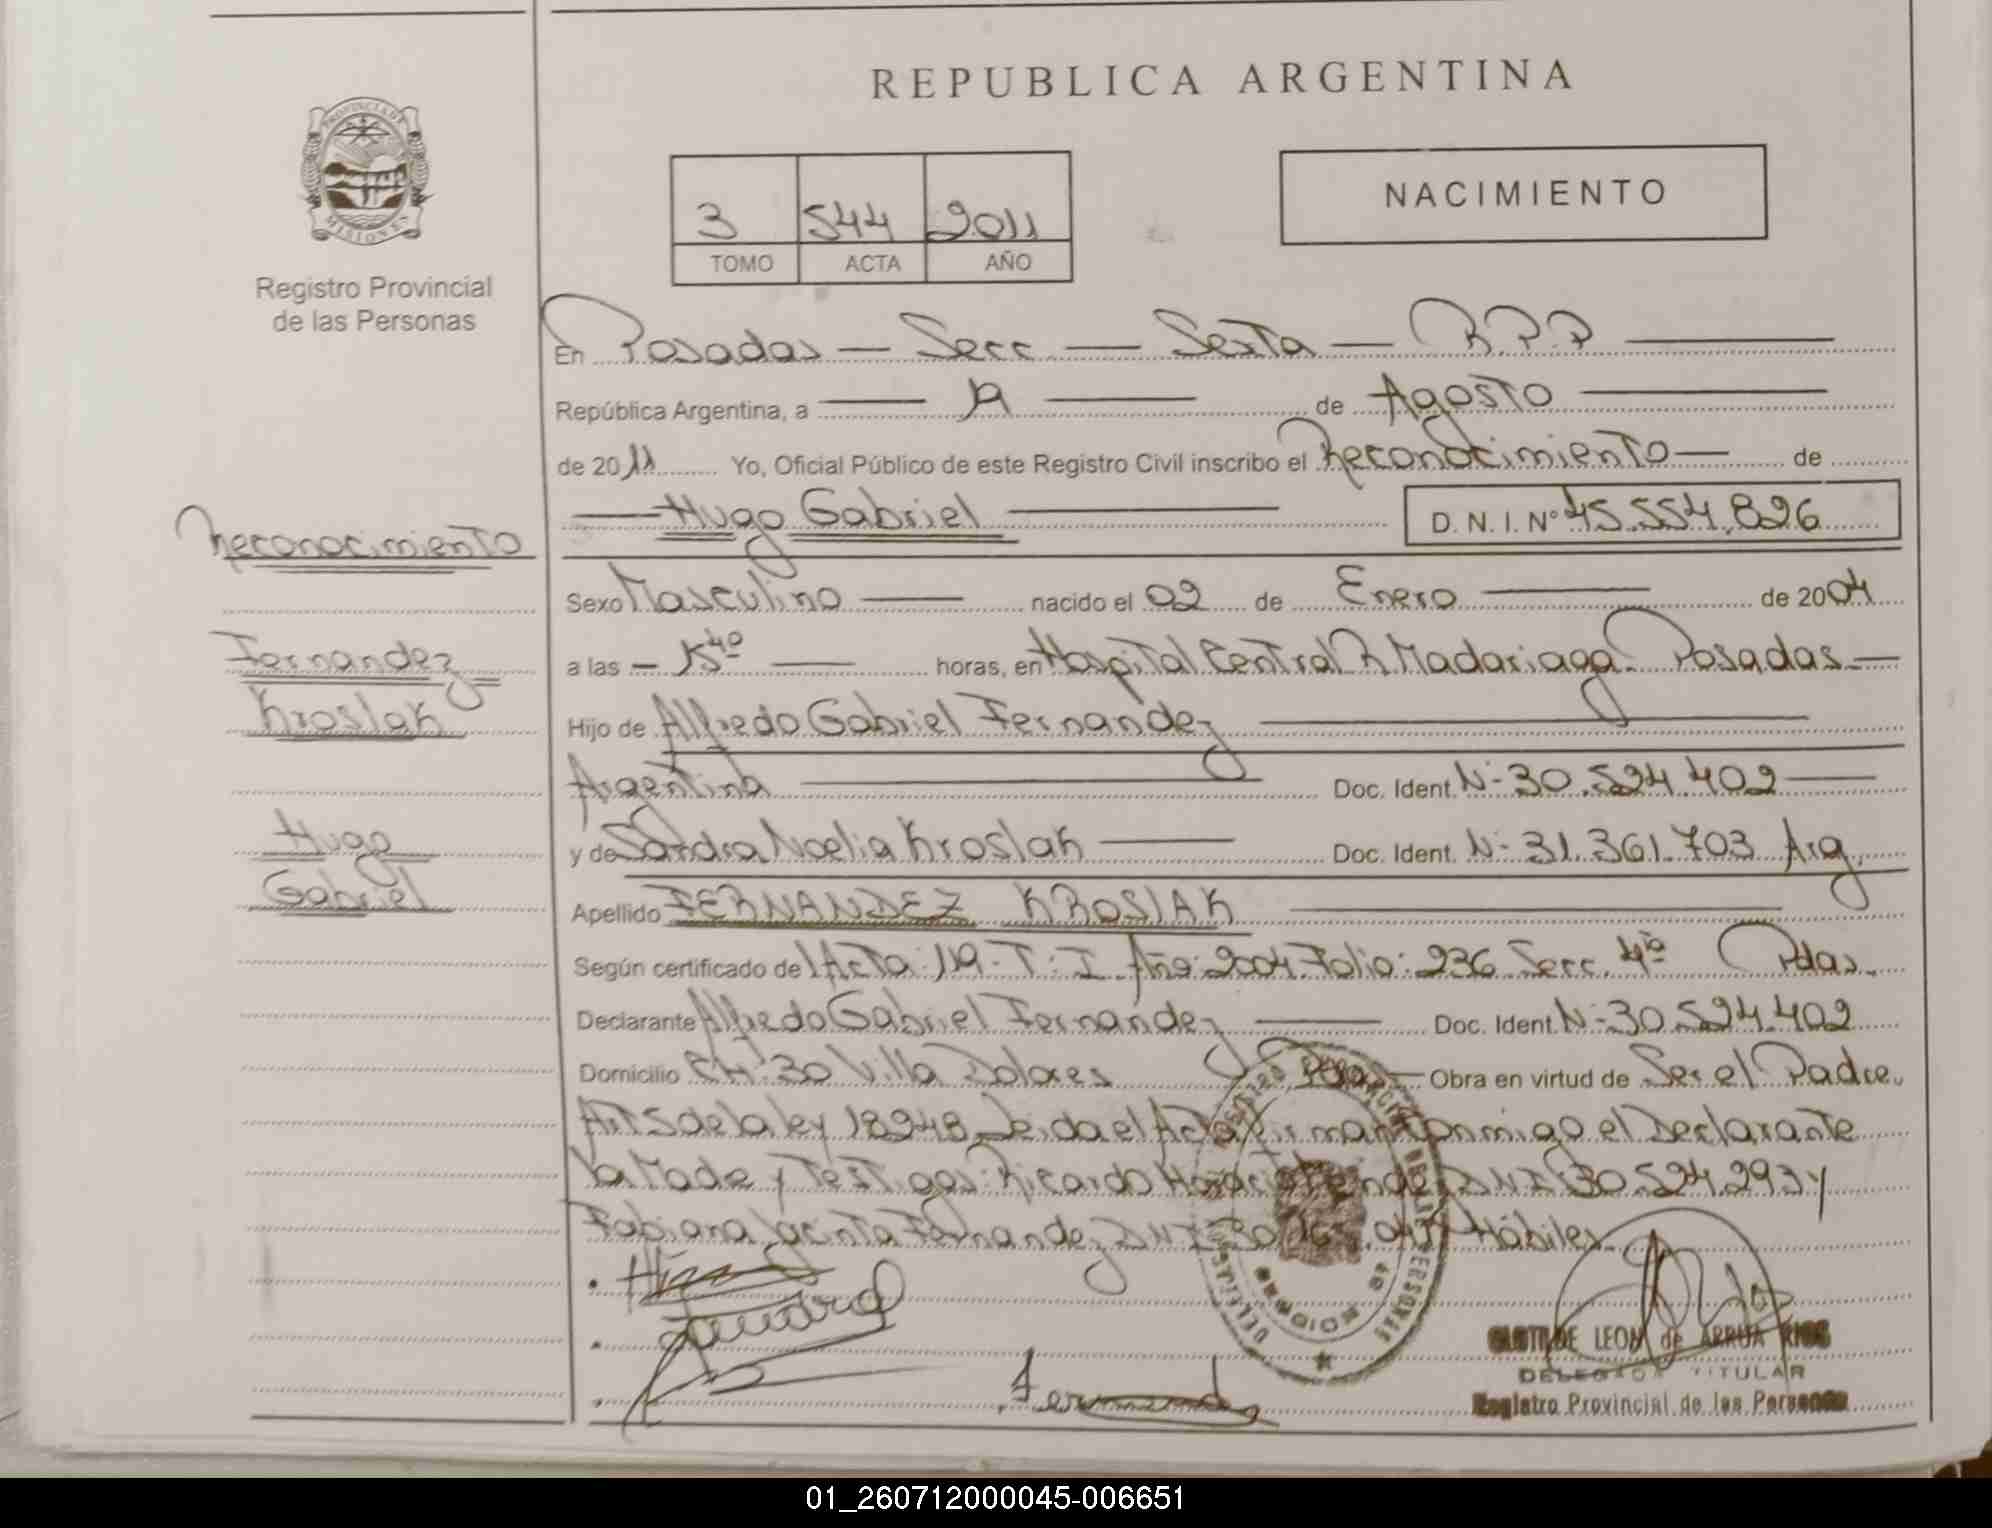 REPUBLICA ARGENTINA
PROVINCIA DE
MISIONES
Registro Provincial
de las Personas
3 544 2011
TOMO ACTA AÑO
NACIMIENTO
En Posadas — Secc — Sexta — R.P.P
República Argentina, a de Agosto
de 2011 Yo, Oficial Público de este Registro Civil inscribo el Reconocimiento — de
Hugo Gabriel D. N. I. Nº 45.554.826
Reconocimiento
Fernandez
Kroslak
Hugo
Gabriel
Sexo Masculino — nacido el 02 de Enero de 2004
a las — 15 40 — horas, en Hospital Central R Madariaga. Posadas —
Hijo de Alfredo Gabriel Fernandez
Argentina Doc. Ident. Nº 30.524.402
y de Sandra Noelia Kroslak Doc. Ident. Nº 31.361.703 Arg.
Apellido FERNANDEZ KROSLAK
Según certificado de Acta: 119. T: I Año: 2004. Folio: 236 Secc. 4º Pdas.
Declarante Alfredo Gabriel Fernandez Doc. Ident. Nº 30.524.402
Domicilio CH: 30 Villa Dolores Pdas — Obra en virtud de Ser el Padre.
Art 5 de la ley 18248. Leida el Acta firman conmigo el Declarante
La Madre y Testigos: Ricardo DNI 30.524.293 y
Fabiana Jacinta Fernandez DNI Hábiles.
Fernandez
CLOTILDE LEON de ARRUA RIOS
DELEGADA TITULAR
Registro Provincial de las Personas
01_260712000045-006651